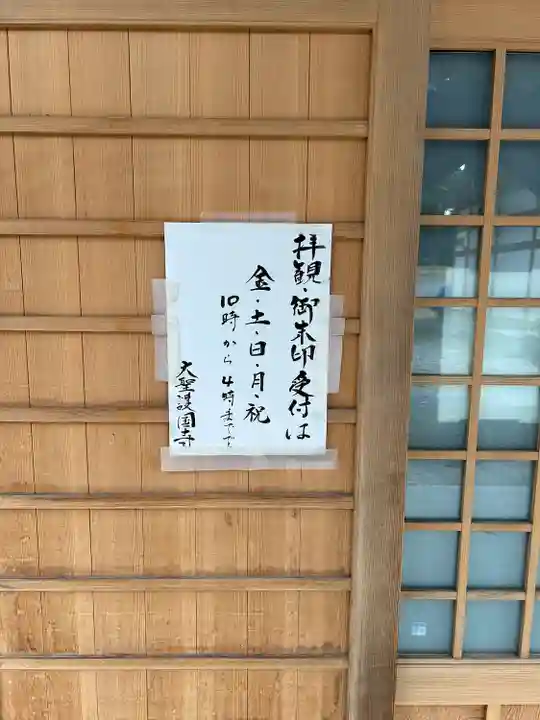 拝観・御朱印受付は
金・土・日・月・祝
10時から4時までです
大聖護国寺